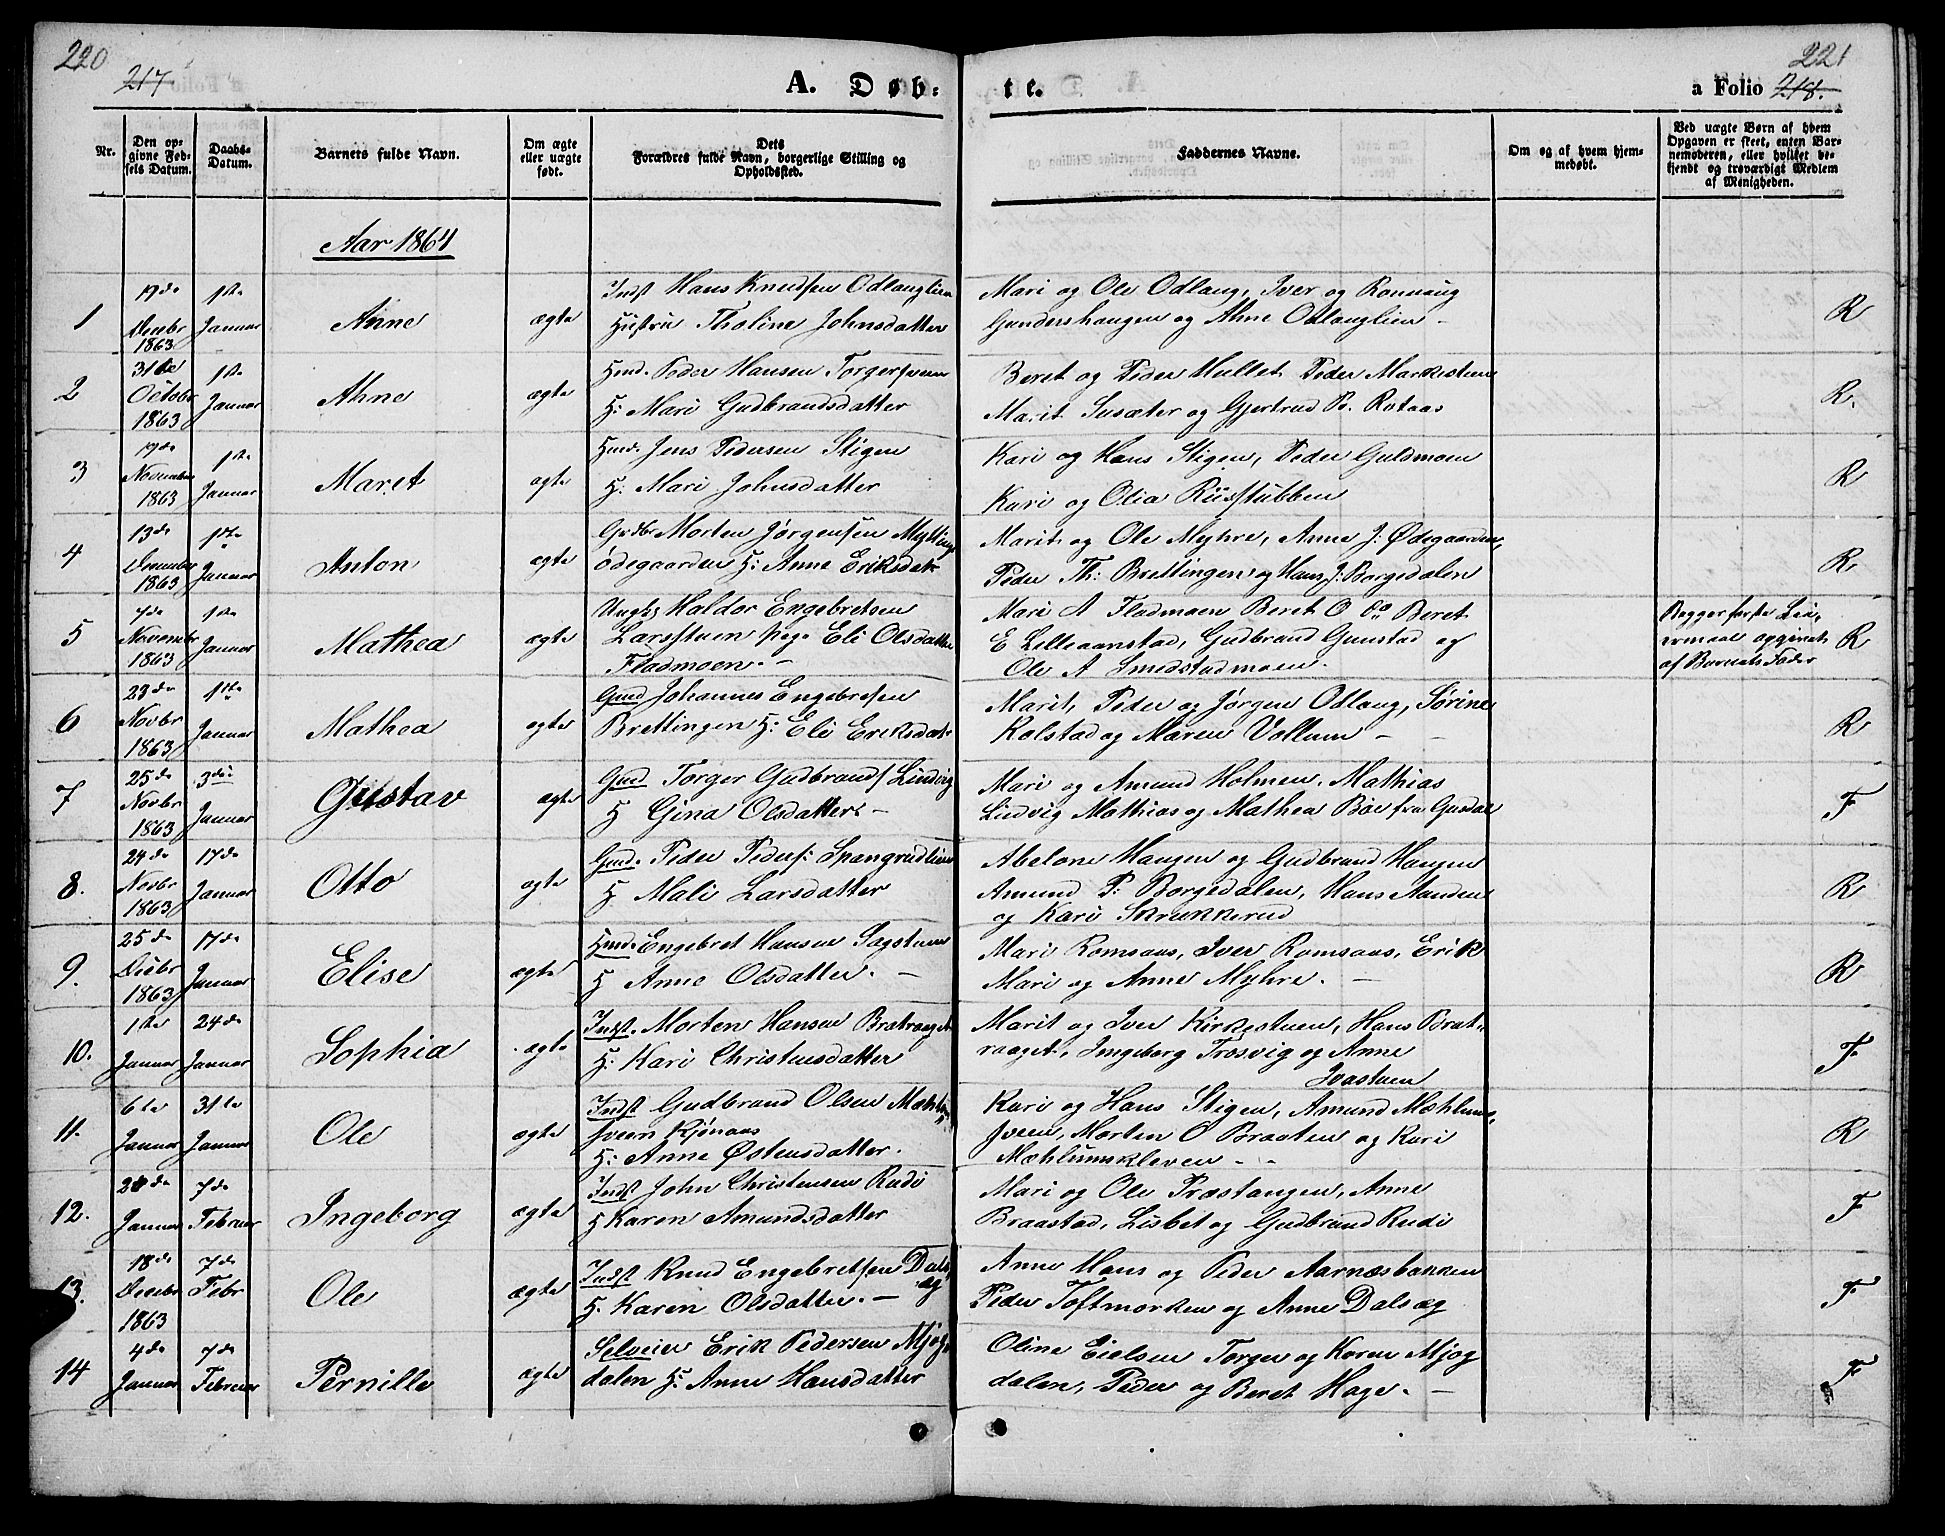 220
217
A. Døb-
te.
221
a Folio 218.
Nr.
Den opgivne Fødsels Datum.
Daabs-Datum.
Barnets fulde Navn.
Om ægte eller uægte født.
Dets Forældres fulde Navn, borgerlige Stilling og Opholdssted.
Faddernes Navne.
Om og af hvem hjemmedøbt.
Ved uægte Børn af hvem Opgaven er skeet, enten Barnemoderen, eller hvilket bekjendt og troværdigt Medlem af Menigheden.
Aar 1864
1 19de Decebr 1863 1ste Januar Anne ægte Indst Hans Knudsen Odlauglien
Hustru Tholine Johnsdatter
Mari og Ole Odlaug, Iver og Ronnaug
Gundershaugen og Anne Odlauglien - R
2 31te Octobr 1863 1ste Januar Anne ægte Hmd. Peder Hansen Torgersveen
H: Mari Gudbrandsdatter
Beret og Peder Hullet Peder Markestuen
Marit Susæter og Gjertrud P. Rotaas R.
3 19de November 1863 1ste Januar Maret ægte Hmd. Jens Pedersen Stigen
H. Mari Johnsdatter
Kari og Hans Stigen, Peder Guldmoen
Kari og Olia Riisstubben R
4 13de December 1863 1ste Januar Anton ægte Grdbr Morten Jørgensen Mytting
ødegaarden H: Anne Eriksdatr
Marit og Ole Myhre, Anne J: Ødegaarden,
Peder Th: Brettingen og Hans J: Borgedalen R
5 7de Novembr 1863 1ste Januar Mathea ægte Ungkl Haldor Engebretsen
Larsstuen pige Eli Olsdatter
Fladmoen. -
Mari A Fladmoen Beret O do Beret
E Lilleaanstad, Gudbrand Gunstad og
Ole A Smedstadmoen.
Begges første Lei-
ermaal opgivet
af Barnets Fader R
6 23de Novbr 1863 1ste Januar Mathea ægte Gmd Johannes Engebretsen
Brettingen H: Eli Eriksdatr
Marit, Peder og Jørgen Odlaug, Sørine
Kolstad og Maren Vollum - - R
7 25de Novbr 1863 3die Januar Gustav ægte Gmd Torger Gudbrands. Lindvig
H Gina Olsdatter -
Mari og Amund Holmen. Mathias
Lindvig Mathias og Mathea Bøe fra Gusdal F
8. 24de Novbr 1863 17de Januar Otto ægte Gmd. Peder Peders: Spangrudlien
H Mali Larsdatter
Abelone Haugen og Gudbrand Haugen
Amund P: Borgedalen, Hans Aanden
og Kari Skrukkerud R
9. 25de Decbr 1863 17de Januar Elise ægte Hmd. Engebret Hansen Sagstuen
H Anne Olsdatter. -
Mari Romsaas, Iver Romsaas, Erik
Mari og Anne Myhre. - R
10. 1ste Januar 24de Januar Sophia ægte Indst. Morten Hansen Bratraaget
H: Kari Christensdatter
Marit og Iver Kirkestuen, Hans Brat-
raaget, Ingeborg Trosvig og Anne
Ivastuen F
11. 6te Januar 31te Januar Ole ægte Indst Gudbrand Olsen Mæhlum
sveen Kjønaas
H: Anne Østensdatter.
Kari og Hans Stigen, Amund Mæhlums
sveen, Morten O Braaten og Kari
Mæhlumskleven - - R
12. Januar 7de Februar Ingeborg ægte Indst John Christensen Rudi
H Karen Amundsdatter
Mari og Ole Præstangen, Anne
Braastad, Lisbet og Gudbrand Rudi F
13. 18de Decebr 1863 7de Febr Ole ægte Indst Knud Engebretsen Dals
æg
H. Karen Olsdatter. -
Anne Hans og Peder Aarnæsbakken
Peder Toftmorken og Anne Dalsæg F
14 4de Januar 7de Februar Pernille ægte Selveier Erik Pedersen Mjog
dalen H: Anne Hansdatter
Oline Eielsen Torger og Karen Mjog
dalen, Peder og Beret Hage. - F